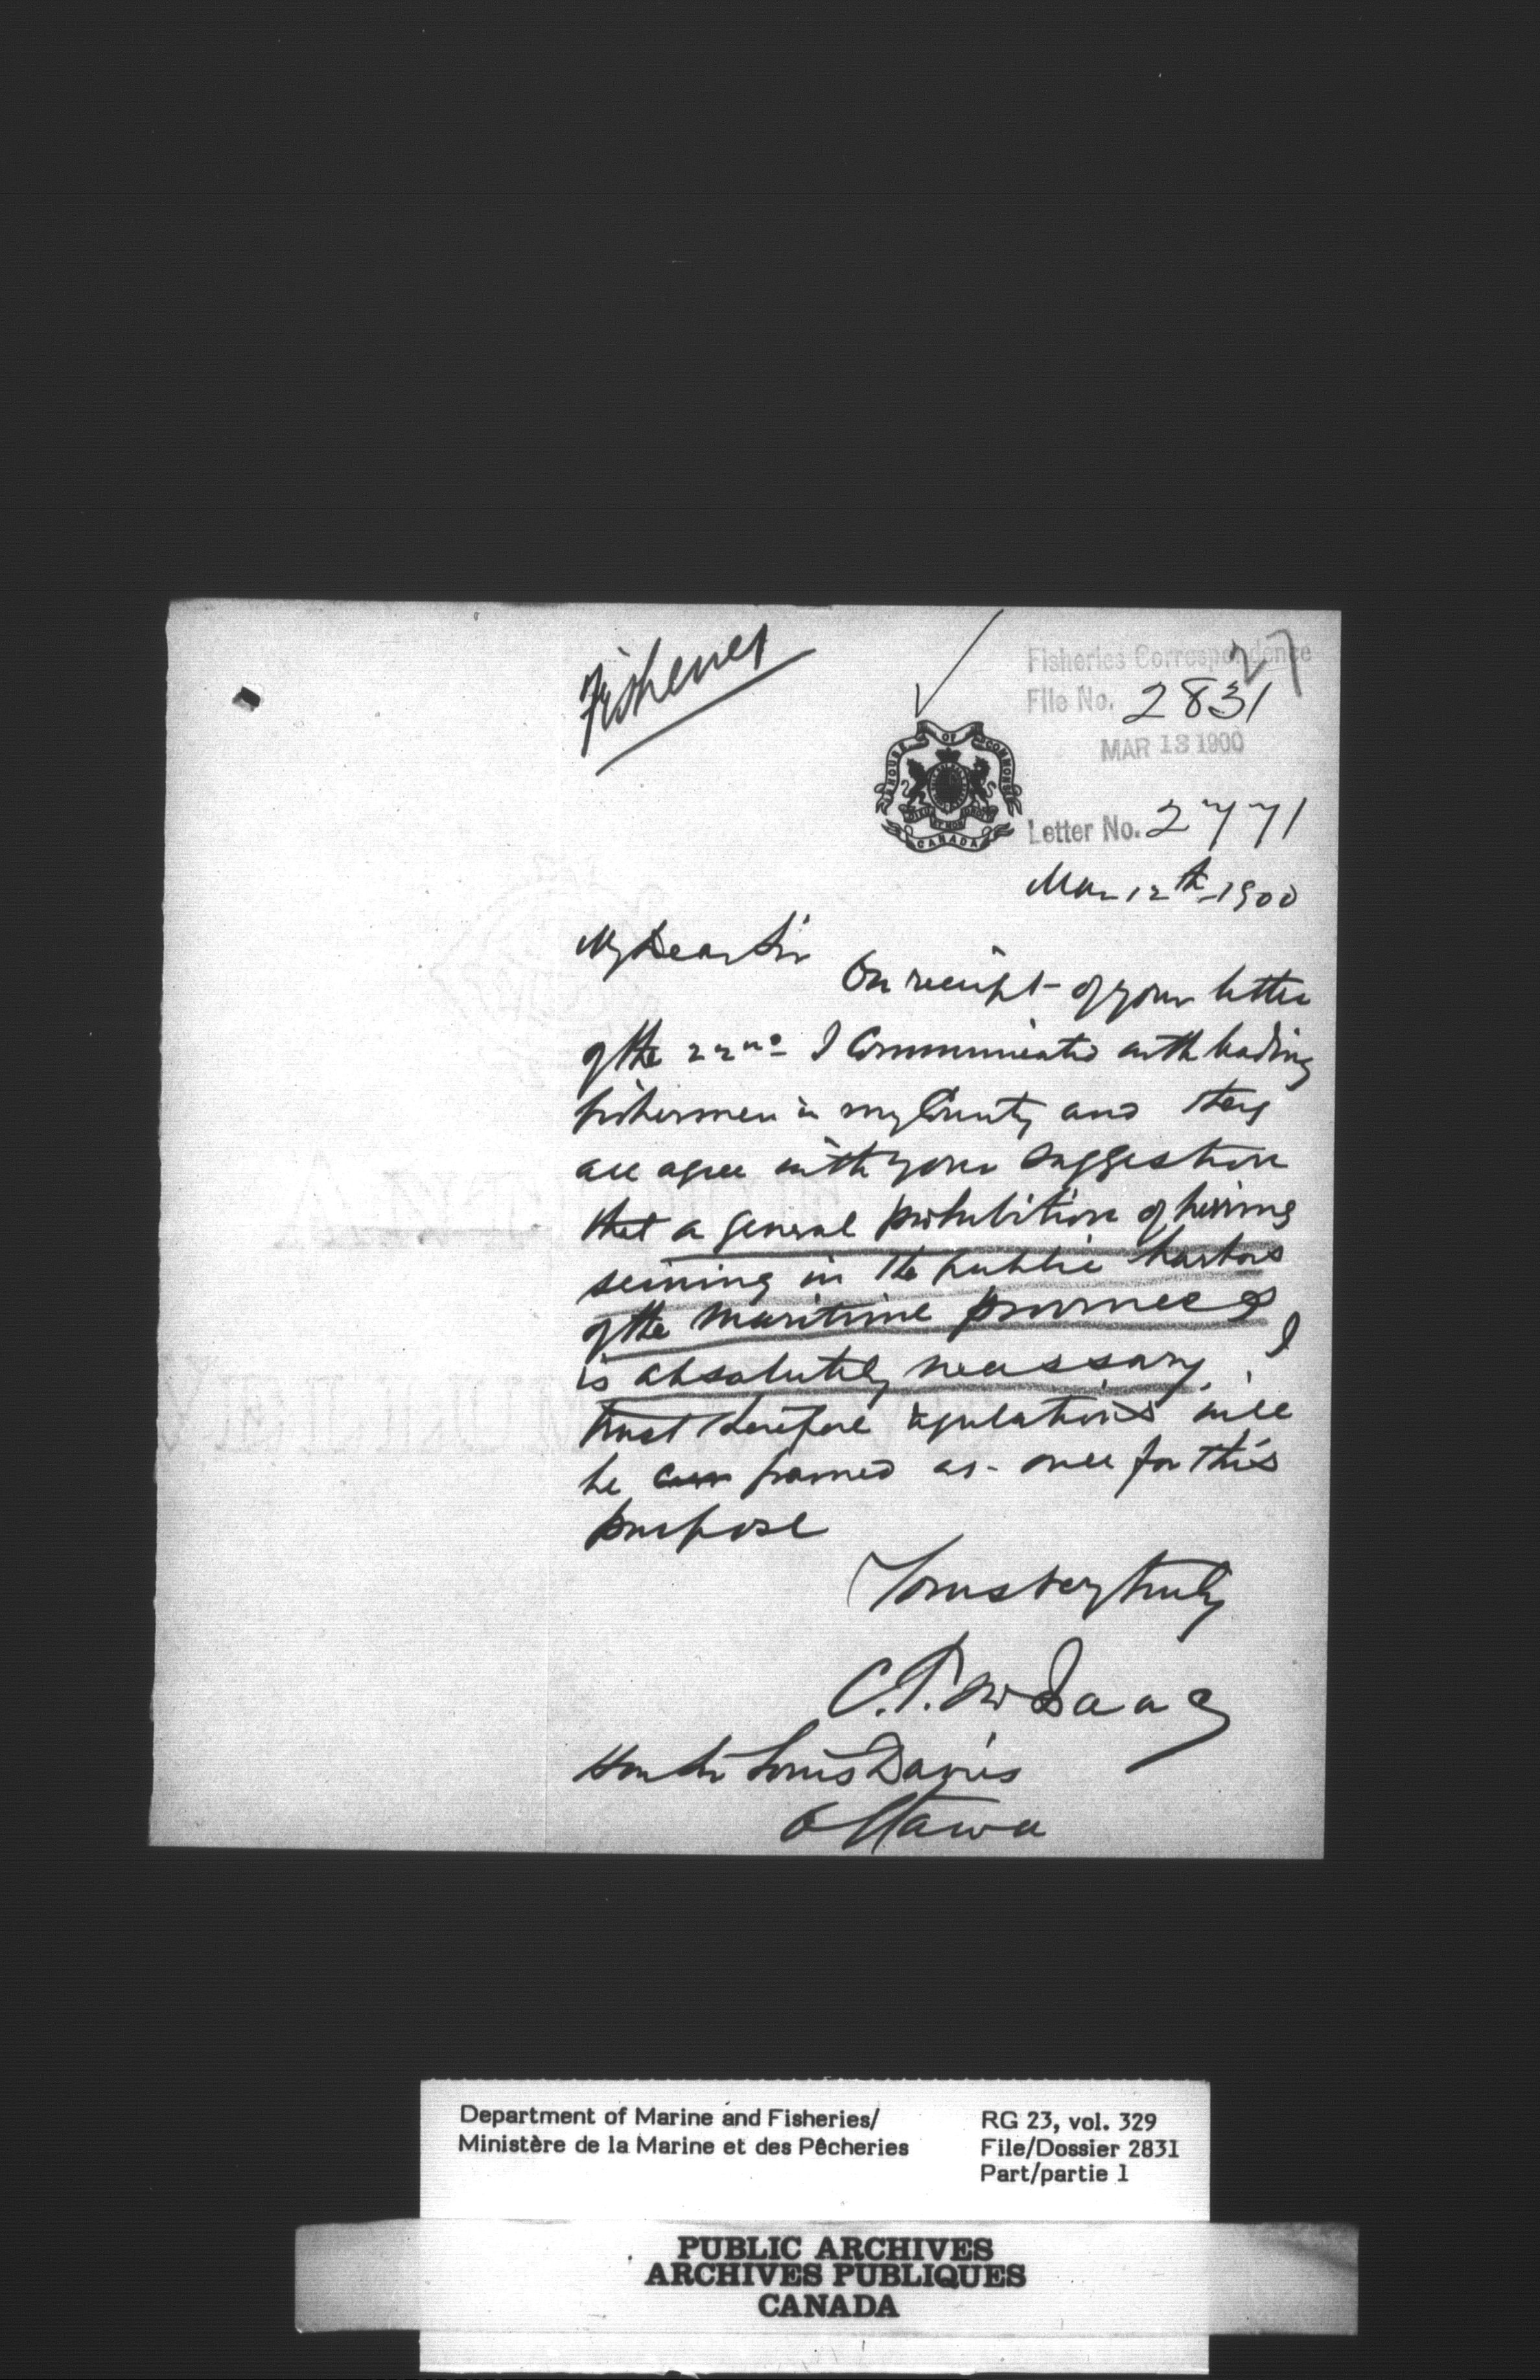 Fisheries
27
Fisheries Correspondence
File No. 2831
MAR 13 1900
HOUSE OF COMMONS
CANADA
Letter No. 2771
Mar 12th 1900
My Dear Sir
On receipt of your letter
of the 22nd I communicated with leading
fishermen in my County and they
all agree with your suggestion
that a general prohibition of herring
seining in the public harbors
of the maritime provinces
is absolutely necessary. I
trust therefore regulations will
be framed at once for this
purpose
Yours very truly
C.F. McIsaac
Hon Sir Louis Davies
Ottawa
Department of Marine and Fisheries/
Ministère de la Marine et des Pêcheries
RG 23, vol. 329
File/Dossier 2831
Part/partie 1
PUBLIC ARCHIVES
ARCHIVES PUBLIQUES
CANADA